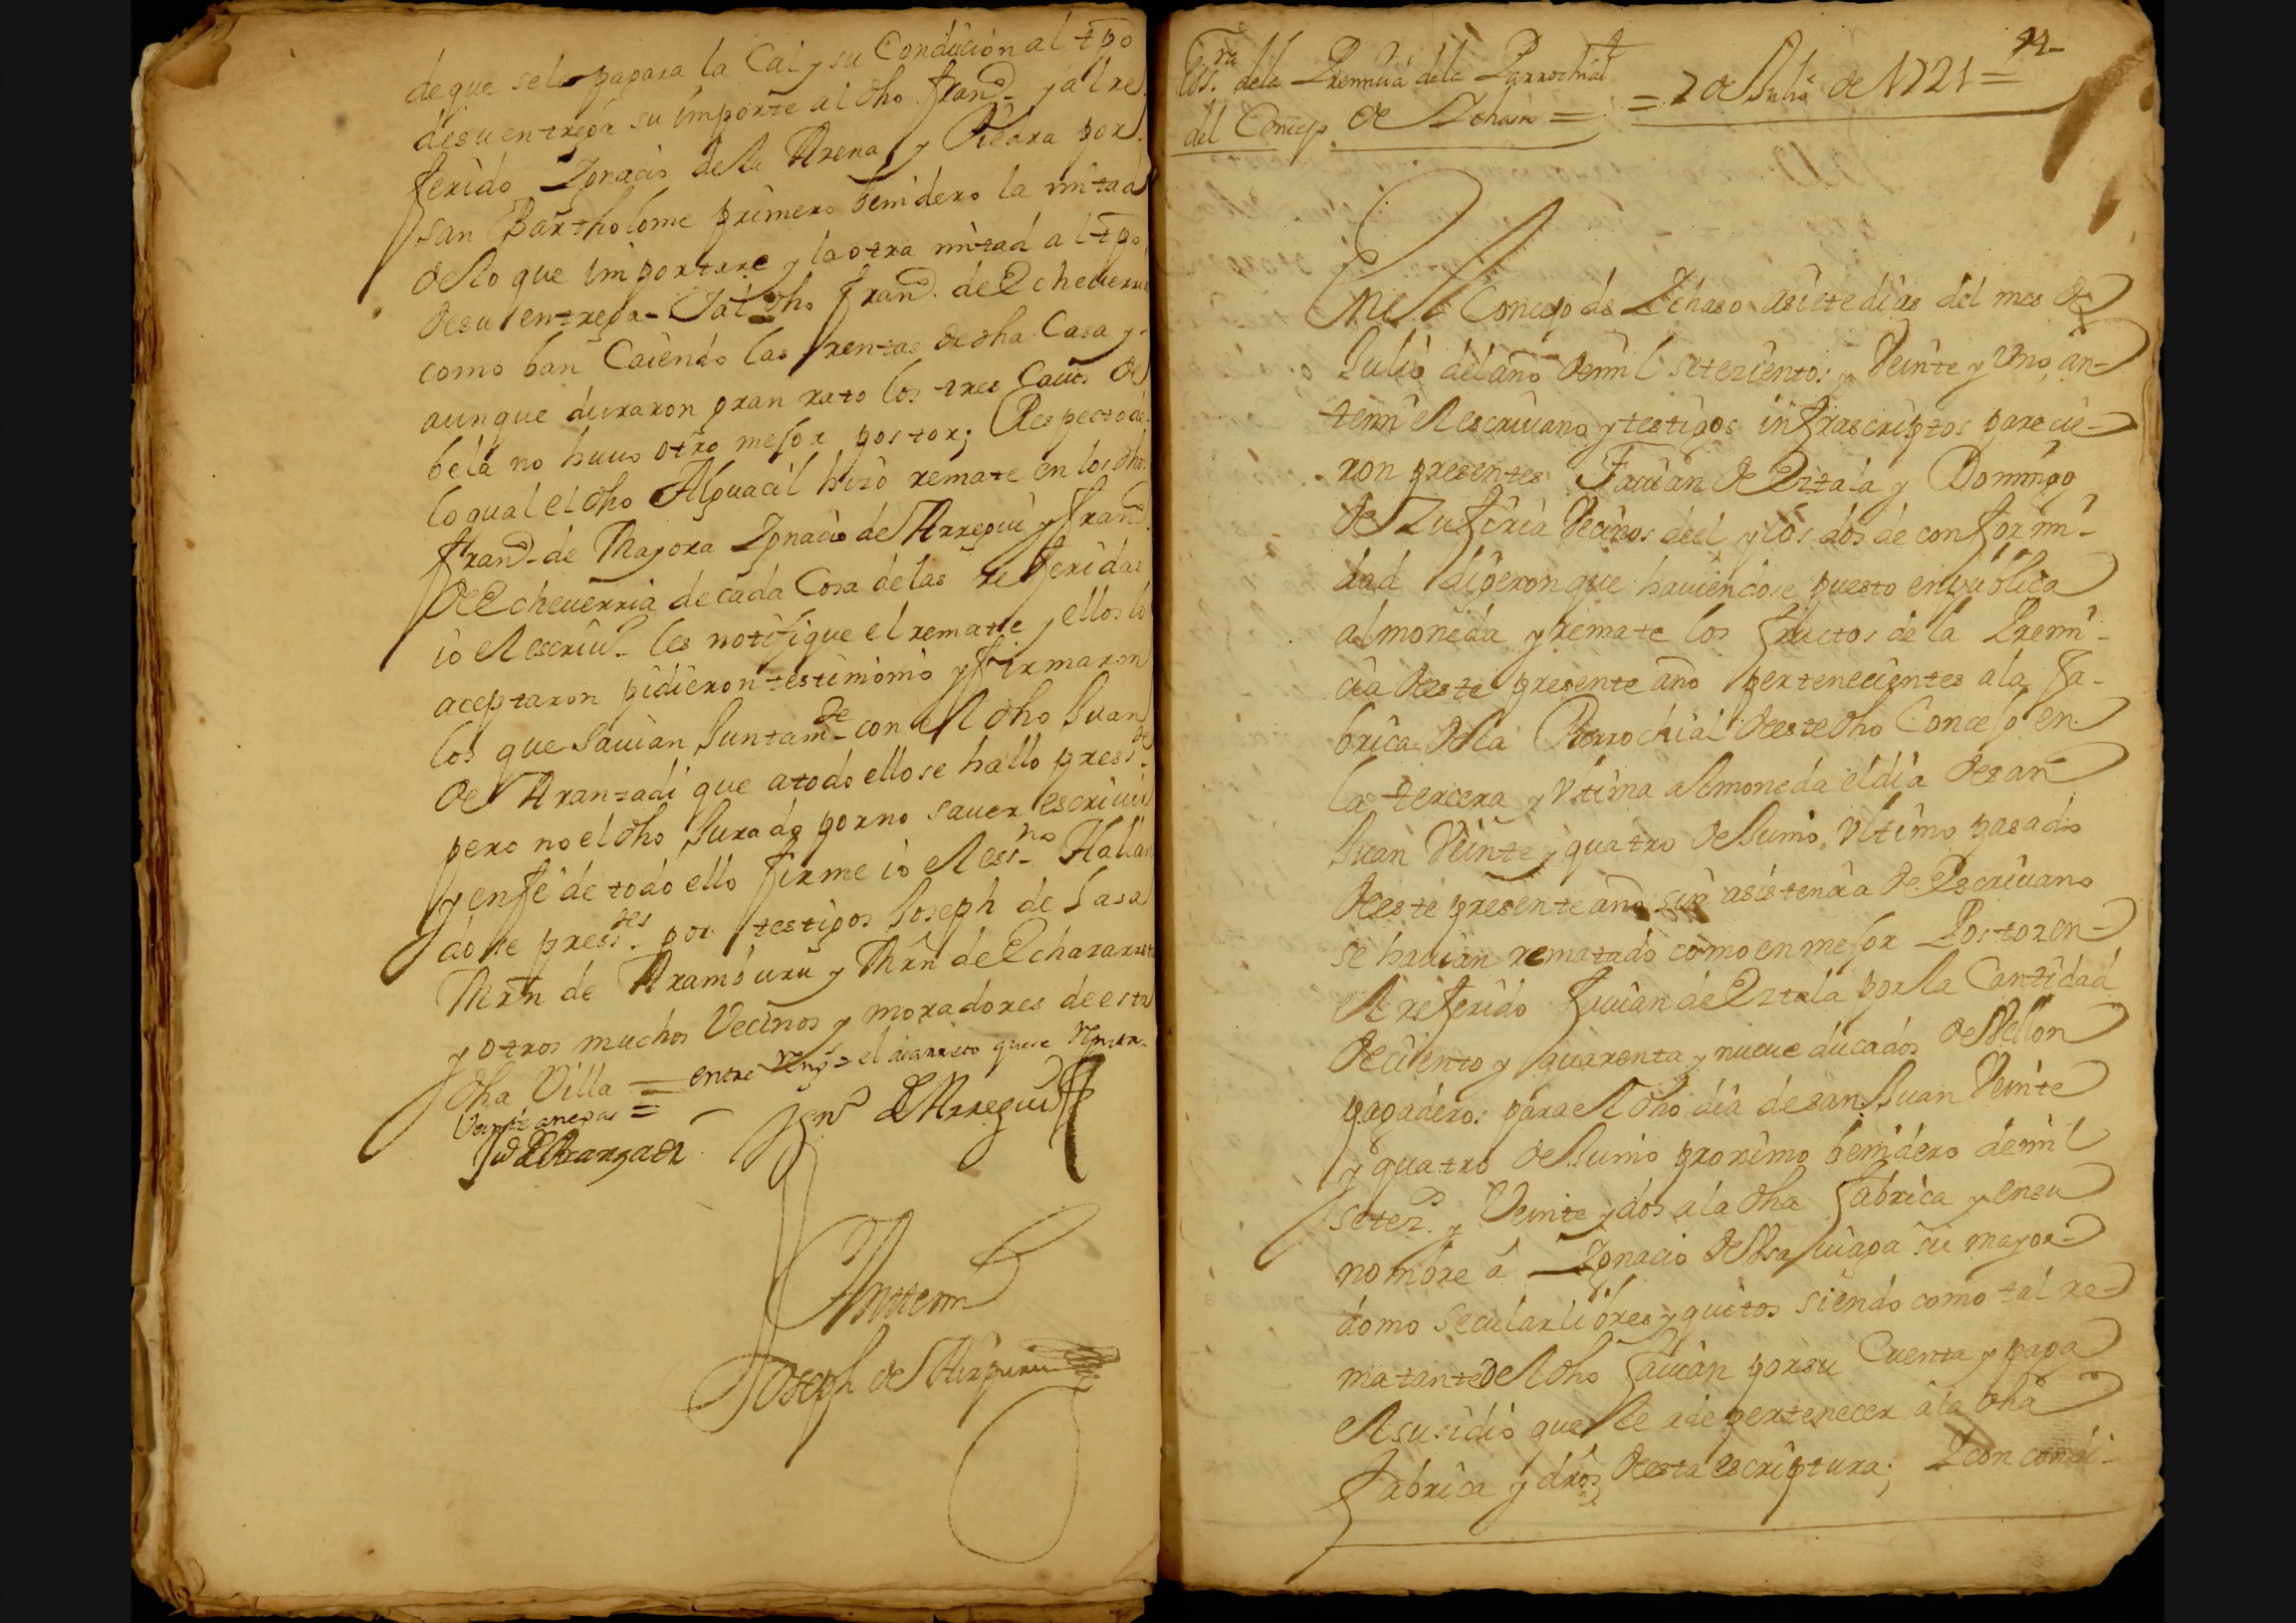 de que se les pagara la Cal y su Conduçion al tpo
de su entrega su importe al dho Franco. y al re
ferido Ygnaçio de la Arena y Piedra por
san Bartholome primero benidero la mitad
de lo que importare y la otra mitad al tpo
de su entrega - Y al dho Franco. de Echeuerria
como ban Caiendo las rentas de dha Casa y
aunque duraron gran rato los tres Cauos de
bela no huuo otro mejor postor; Respecto de
lo qual el dho Alguaçil hizo remate en los dhos
Franco. de Mayora Ygnaçio de Arregui y Franco.
de Echeuerria de cada Cosa de las referidas
io el escriuo. les notifique el remate y ellos lo
aceptaron pidieron testimonio y firmaron
los que sauian Juntamte. con el dho Juan
de Aranzadi que a todo ello se hallo presste.
pero no el dho Jurado por no sauer escriuir
y en fe de todo ello firme io el essno. Hallan
dose presstes. por testigos Joseph de Sasa
Mrn de Aramburu y Mrn de Echazarreta
y otros muchos Vecinos y moradores de esta
dha Villa = entre Rengs = el acarreto que se
Veinte anegas =
Ju de Aranzadi Ygno de Arregui
Antemi
Joseph de Aizpurua
44
Essra. de la Premiçia de la Parrochial
del Conçejo de Echaso = = 7 de Julio de 1721 =
En el Conçejo de Echaso a siete dias del mes de
Julio del año de mil setezientos y Veinte y Uno, an-
te mi el escriuano y testigos infrascriptos pareçie-
ron presentes Fauian de Eztala y Domingo
de Zufiria Veçinos de el y los dos de conformi-
dad digeron que hauiendose puesto en publica
almoneda y remate los fructos de la Premi-
çia de este presente año pertenecientes a la fa-
brica de la Parrochial de este dho Concejo en
la terçera y Ultima almoneda el dia de san
Juan Veinte y quatro de Junio Ultimo pasado
de este presente año sin asistençia de Escriuano
se hauian rematado como en mejor Postor en
el referido Fauian de Eztala por la Cantidad
de çiento y quarenta y nueue ducados de Vellon
pagaderos para el dho dia de san Juan Veinte
y quatro de Junio proximo benidero de mil
setezos. y Veinte y dos a la dha fabrica y en su
nombre a Ygnacio de su mayor-
domo secular libres y quitos siendo como tal re-
matante de el dho Fauian por su Cuenta y paga
el susidio que se a de pertenecer a la dha
fabrica y dros de esta escriptura; Y con condi-